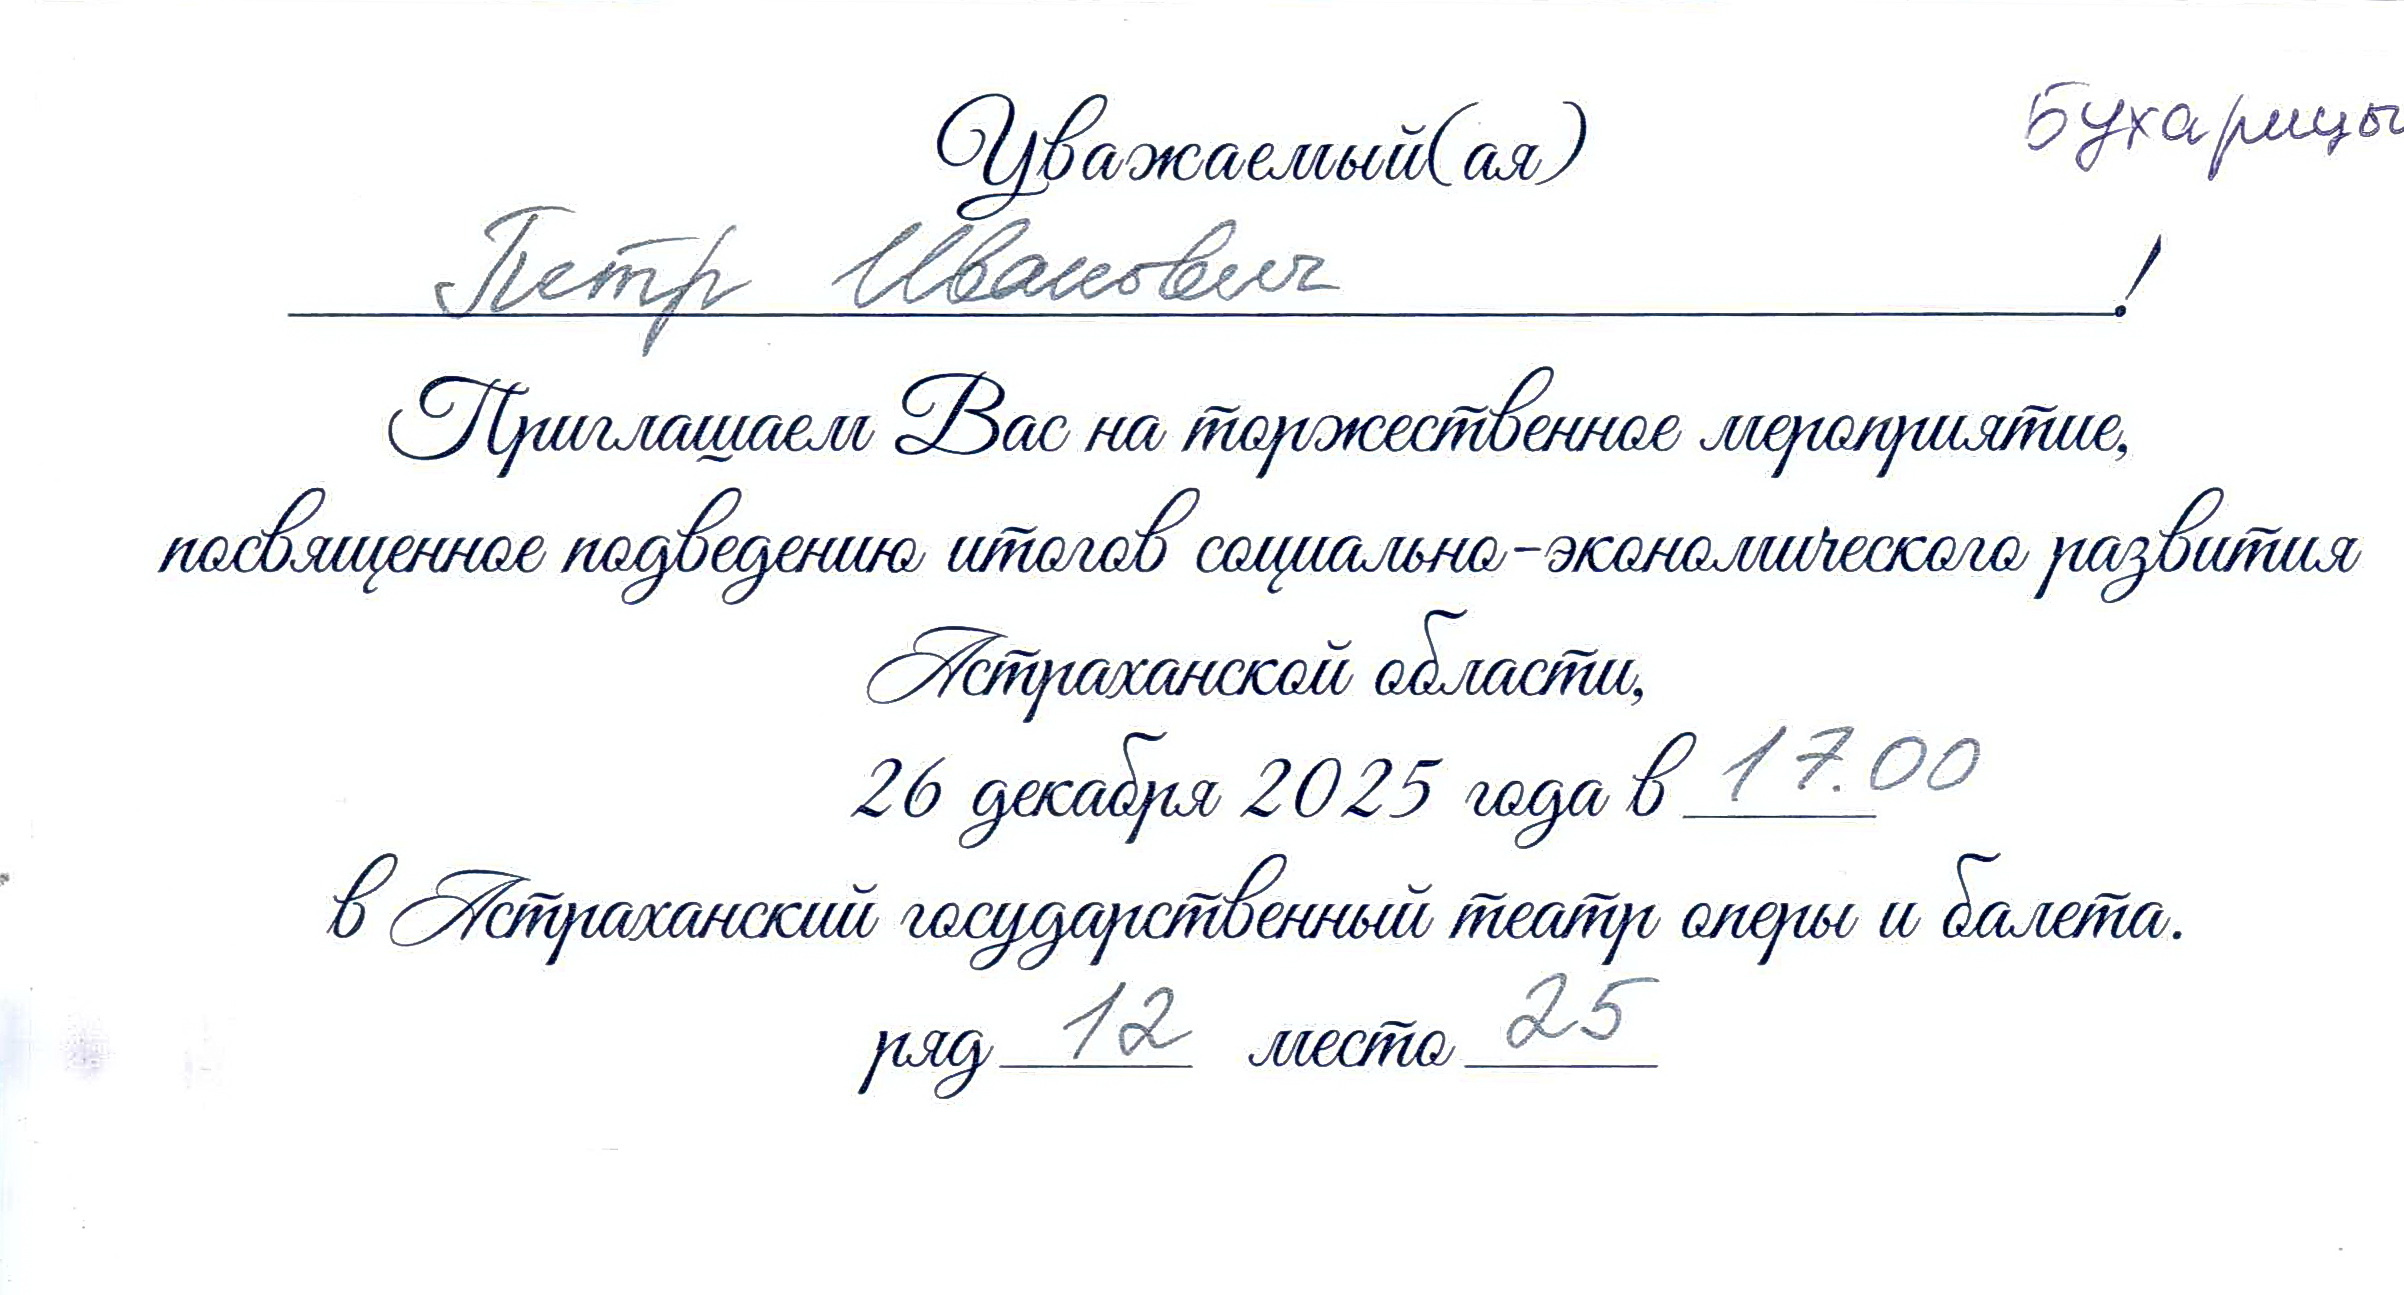 Бухарицы
Уважаемый(ая)
Петр Иванович!
Приглашаем Вас на торжественное мероприятие,
посвященное подведению итогов социально-экономического развития
Астраханской области,
26 декабря 2025 года в 17.00
в Астраханский государственный театр оперы и балета.
ряд 12 место 25